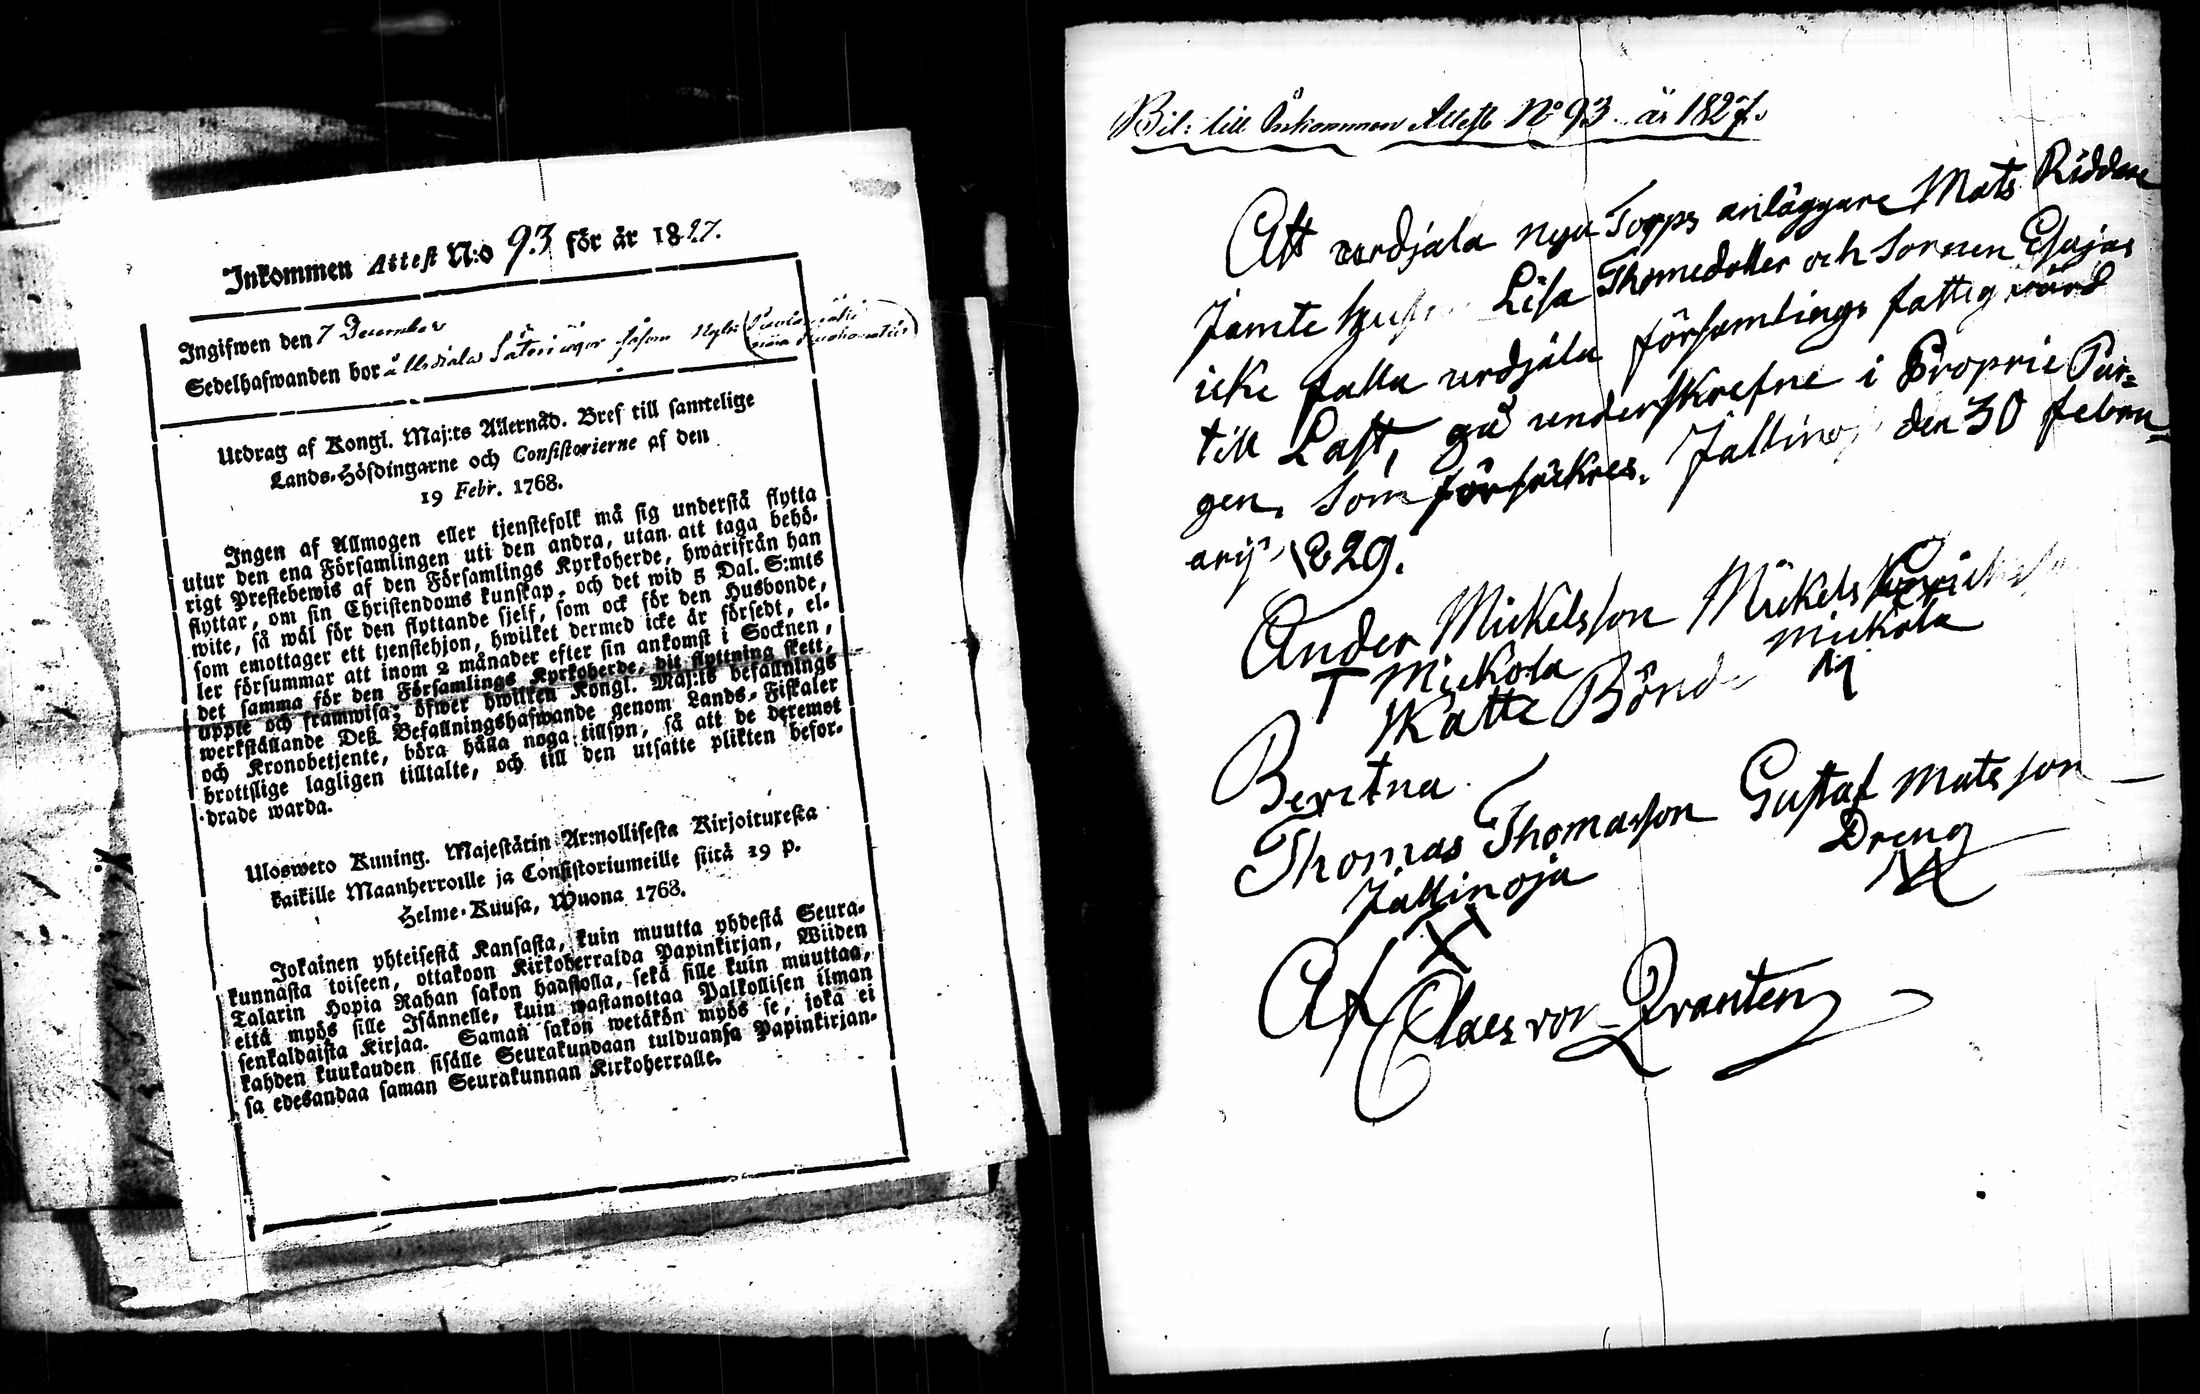 Inkommen Attest N:o 93 för år 1827.
Ingifwen den 7 December
Sedelhafwanden bor å Urdiala Säteri ägor såsom
Utdrag af Kongl. Maj:ts Allernåd. Bref till samtelige
Lands-Höfdingarne och Consistorierne af den
19 Febr. 1768.
Ingen af Allmogen eller tjenstefolk må sig understå flytta
utur den ena Församlingen uti den andra, utan att taga behö-
rigt Prestebewis af den Församlings Kyrkoherde, hwarifrån han
flyttar, om sin Christendoms kunskap, och det wid 5 Dal. S:mts
wite, så wäl för den flyttande sjelf, som ock för den Husbonde,
som emottager ett tjenstehjon, hwilket dermed icke är försedt, el-
ler försummar att inom 2 månader efter sin ankomst i Socknen,
det samma för den Församlings Kyrkoherde, dit flyttning skett,
uppte och framwisa; öfwer hwilken Kongl. Maj:ts befallnings
werkställande Deß Befallningshafwande genom Lands-Fiskaler
och Kronobetjente, böra hålla noga tillsyn, så att de deremot
brottslige lagligen tilltalte, och till den utsatte plikten befor-
drade warda.
Ulosweto Kuning. Majestätin Armollisesta Kirjoituxesta
kaikille Maanherroille ja Consistoriumeille siitä 19 p.
Helme-Kuusa, Wuona 1768.
Jokainen yhteisestä Kansasta, kuin muutta yhdestä Seura-
kunnasta toiseen, ottakoon Kirkoherralda Papinkirjan, Wiiden
Talarin Hopia Rahan sakon haastolla, sekä sille kuin muuttaa,
että myös sille Isännelle, kuin wastanottaa Palkollisen ilman
senkaldaista Kirjaa. Saman sakon wetäkön myös se, joka ei
kahden kuukauden sisälle Seurakundaan tulduansa Papinkirjan-
sa edesandaa saman Seurakunnan Kirkoherralle.
Bil: till Inkommen Attest No 93 år 1827.
Att urdjala nya Torps anläggare Mats Riddare
Jamte hustr Lisa Thomedotter och Sonnen Esajas
icke falla urdjala församlings fattigvård
till Last, gå underskrefne i Proprie Bor=
gen, Som försäkres. Jallino den 30 febru
arij 1829.
Ander Mickelsson Mickels
T Mickola mickola
Matte Bönd M
Beritna
Thomas Thomasson Gustaf matsson
Jallinoja Dreng
X
Af Claes von Qvanten